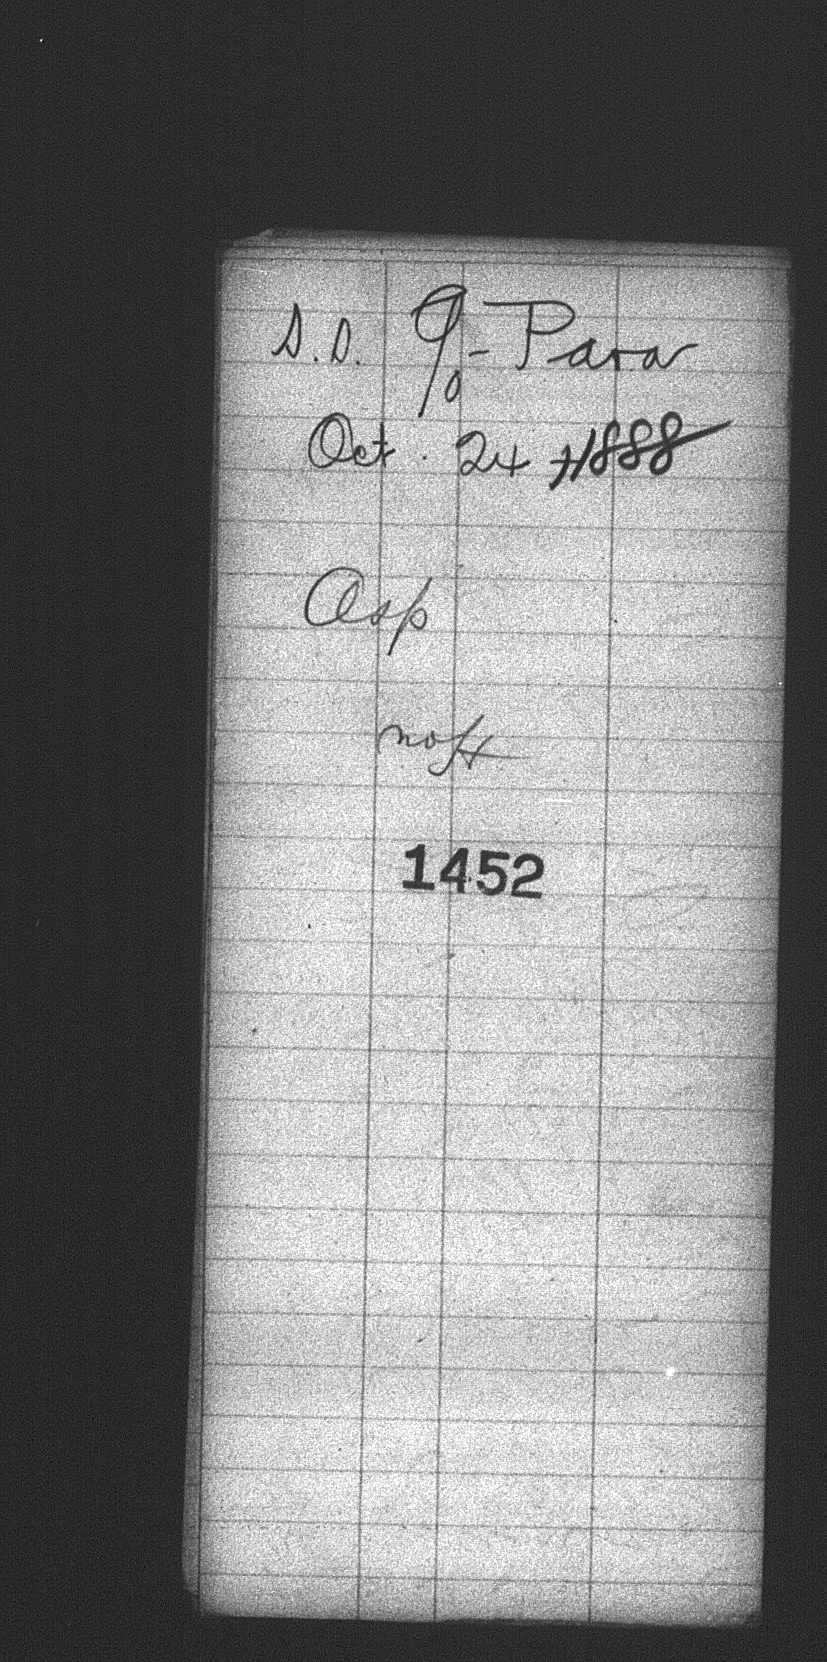 S.D. 9/0 - Para
Oct. 24 /1888
Asp
1452